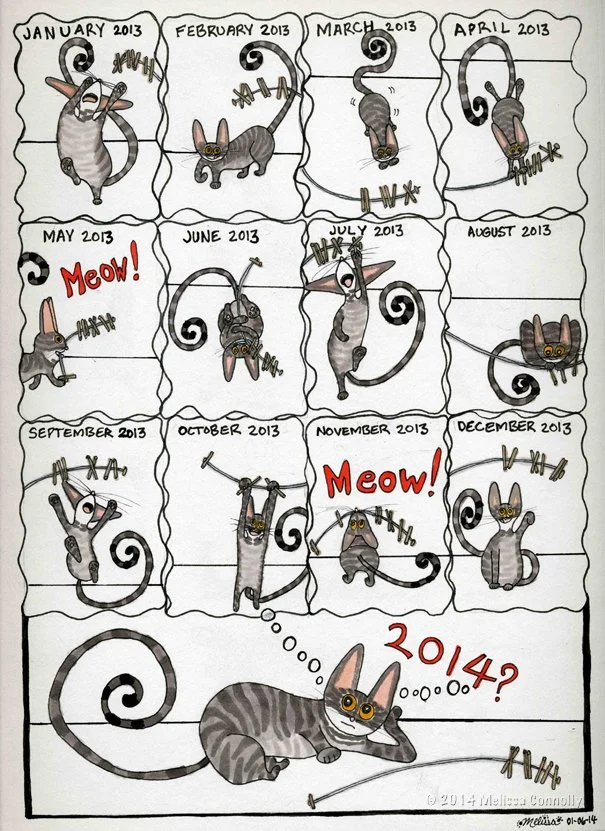 JANUARY 2013
FEBRUARY 2013
MARCH 2013
APRIL 2013
MAY 2013
Meow!
JUNE 2013
JULY 2013
AUGUST 2013
SEPTEMBER 2013
OCTOBER 2013
NOVEMBER 2013
Meow!
DECEMBER 2013
2014?
© 2014 Melissa Connolly
Melissa 01-06-14